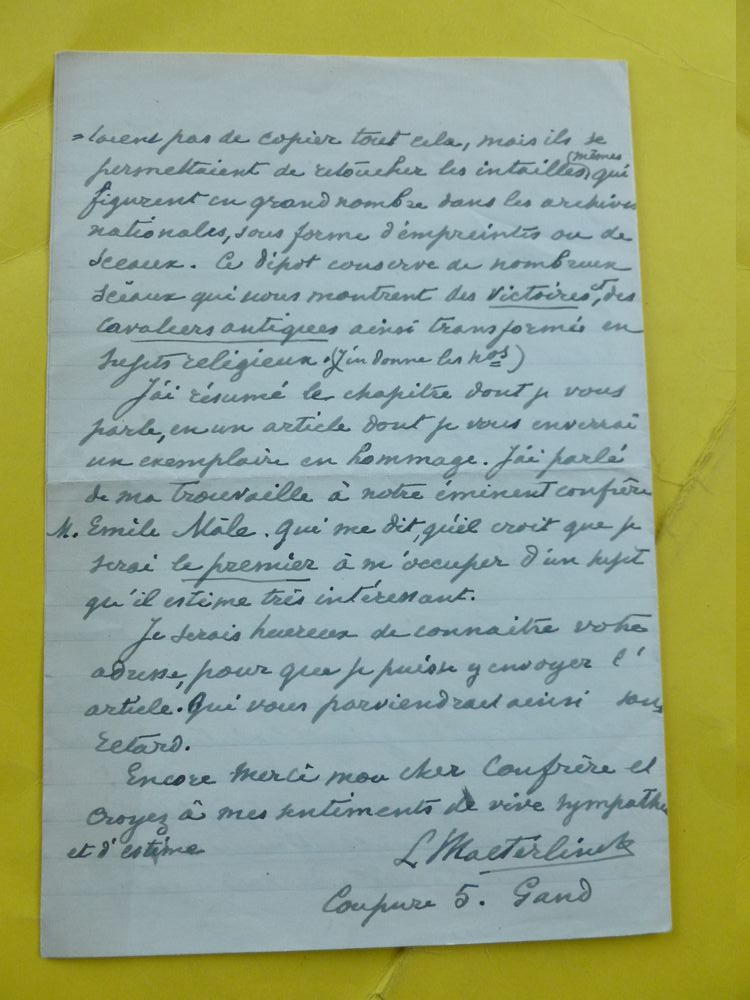 =taient pas de copier tout cela, mais ils se
permettaient de retoucher les intailles (mêmes) qui
figurent en grand nombre dans les archives
nationales, sous forme d'émpreintes ou de
sceaux. Ce dépot conserve de nombreux
scéaux qui nous montrent des victoires et des
cavaliers antiques ainsi transformés en
sujets religieux. (J'en donne les nos)
J'ai résumé le chapitre dont je vous
parle, en un article dont je vous enverrai
un exemplaire en hommage. J'ai parlé
de ma trouvaille à notre éminent confrère
M. Emile Mâle. Qui me dit, qu'il croit que je
serai le premier à m'occuper d'un sujet
qu'il estime très intéressant.
Je serais heureux de connaitre votre
adresse, pour que je puisse y envoyer l'
article. Qui vous parviendrait ainsi sans
retard.
Encore merci mon cher Confrère et
croyez à mes sentiments de vive sympathie
et d'estime
L Maeterlinck
Coupure 5. Gand